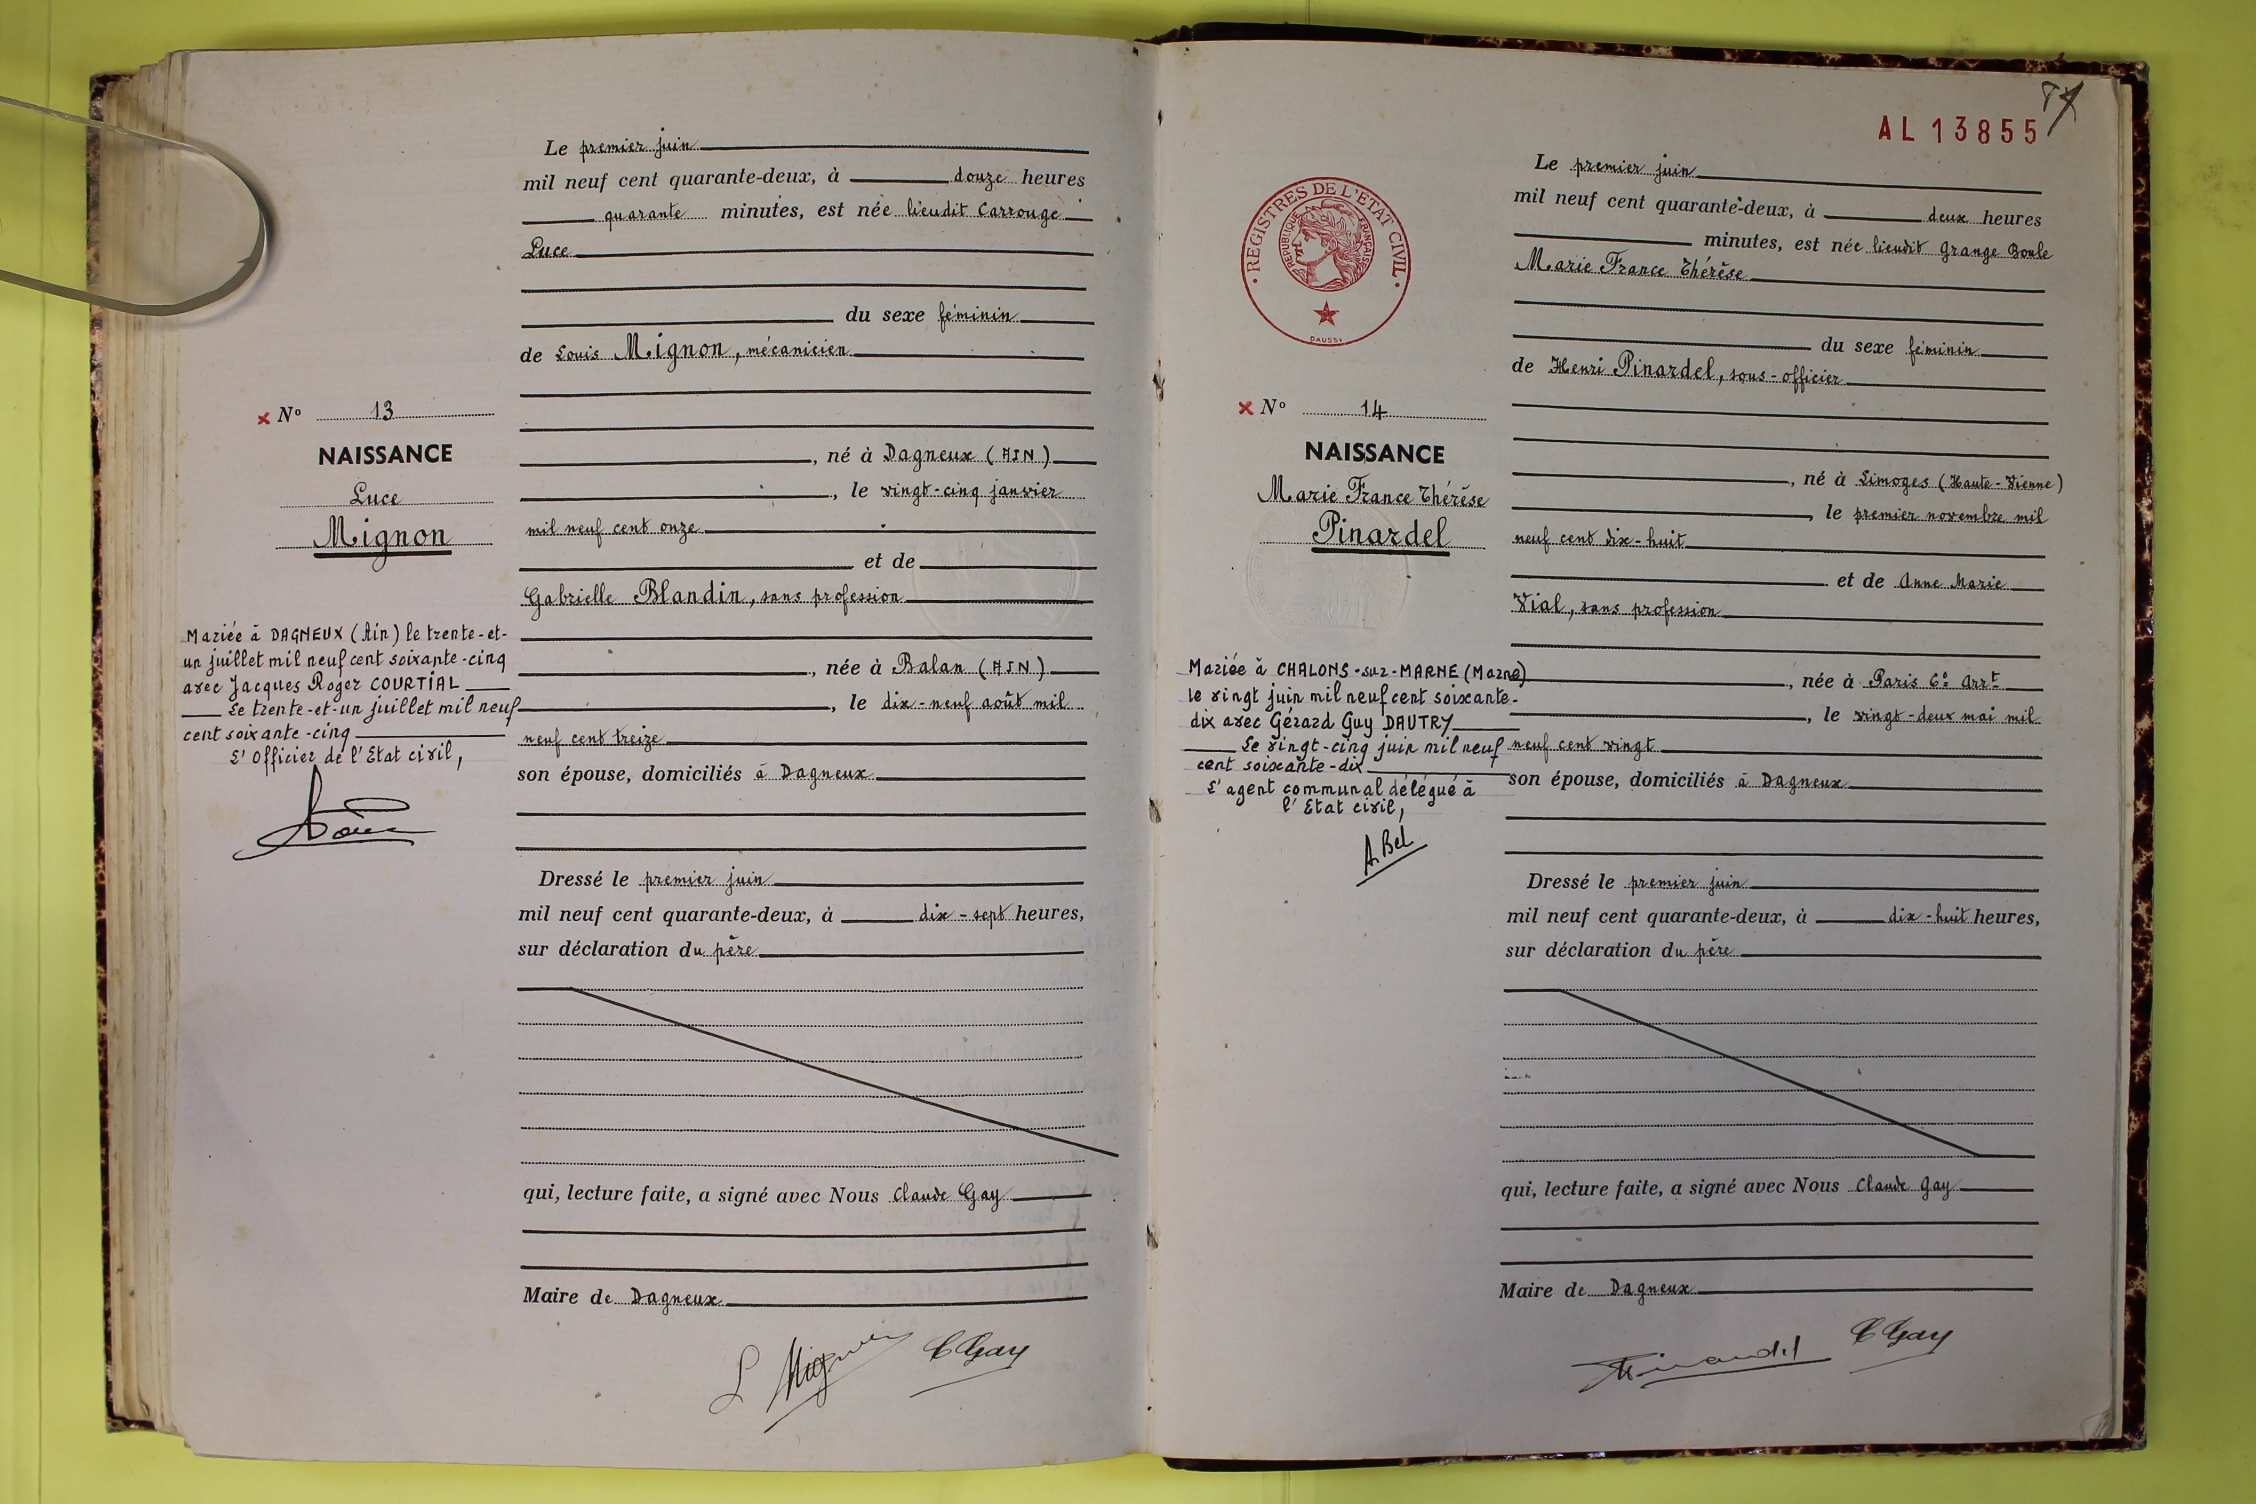 Le premier juin
mil neuf cent quarante-deux, à douze heures
quarante minutes, est née lieudit Carrouge
Luce
du sexe féminin
de Louis Mignon, mécanicien
× No 13
NAISSANCE
Luce
Mignon
, né à Dagneux (AIN)
, le vingt-cinq janvier
mil neuf cent onze
et de
Gabrielle Blandin, sans profession
, née à Balan (AIN)
, le dix-neuf août mil
neuf cent treize
son épouse, domiciliés à Dagneux
Mariée à DAGNEUX (Ain) le trente-et-
un juillet mil neuf cent soixante-cinq
avec Jacques Roger COURTIAL
Le trente-et-un juillet mil neuf
cent soixante-cinq
L'Officier de l'Etat civil,
Dressé le premier juin
mil neuf cent quarante-deux, à dix-sept heures,
sur déclaration du père
qui, lecture faite, a signé avec Nous Claude Gay
Maire de Dagneux
L Mignon C Gay
AL 13855
Le premier juin
mil neuf cent quarante-deux, à deux heures
minutes, est née lieudit Grange Boule
Marie France Thérèse
du sexe féminin
de Henri Pinardel, sous-officier
REGISTRES DE L'ETAT CIVIL
REPUBLIQUE FRANÇAISE
DAUSSY
× No 14
NAISSANCE
Marie France Thérèse
Pinardel
, né à Limoges (Haute-Vienne)
, le premier novembre mil
neuf cent dix-huit
et de Anne Marie
Vial, sans profession
, née à Paris 6e Arrt
, le vingt-deux mai mil
neuf cent vingt
son épouse, domiciliés à Dagneux
Mariée à CHALONS-sur-MARNE (Marne)
le vingt juin mil neuf cent soixante-
dix avec Gérard Guy DAUTRY
Le vingt-cinq juin mil neuf
cent soixante-dix
L'agent communal délégué à
l'Etat civil,
A. Bel
Dressé le premier juin
mil neuf cent quarante-deux, à dix-huit heures,
sur déclaration du père
qui, lecture faite, a signé avec Nous Claude Gay
Maire de Dagneux
Pinardel C Gay